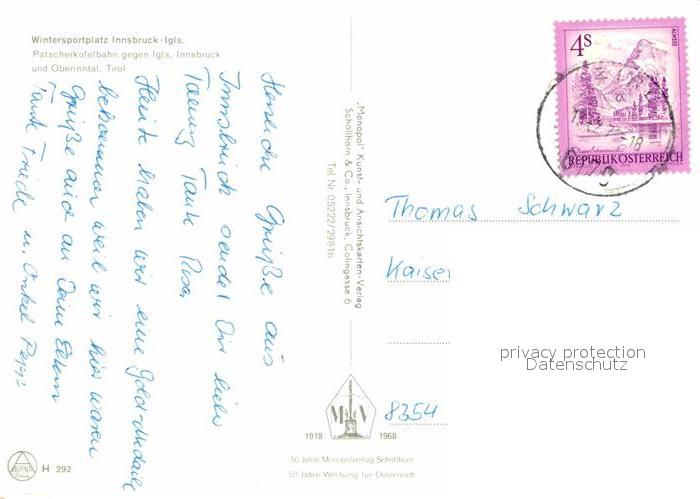 Wintersportplatz Innsbruck-Igls.
Patscherkofelbahn gegen Igls, Innsbruck
und Oberinntal, Tirol
Herzliche Grüße aus
Innsbruck sendet Dir lieber
Tante Rosa
Heute haben wir eine Gold-Medaille
bekommen weil wir hier waren
Grüße auch an Deine Eltern
Tante Friede u. Onkel
"Monopol" Kunst- und Ansichtskarten-Verlag
Schöllhorn & Co., Innsbruck, Colingasse 6
Tel Nr. 05222/29816
4S
ALMSEE
REPUBLIK ÖSTERREICH
Thomas Schwarz
Kaiser
8354
privacy protection
Datenschutz
M V
1918 1968
50 Jahre Monopolverlag Schöllhorn
50 Jahre Werbung für Österreich
H 292